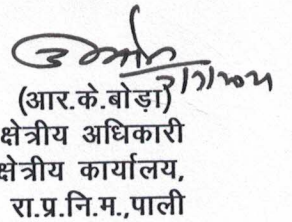 (आर.के.बोड़ा)
क्षेत्रीय अधिकारी
क्षेत्रीय कार्यालय,
रा.प्र.नि.म.,पाली